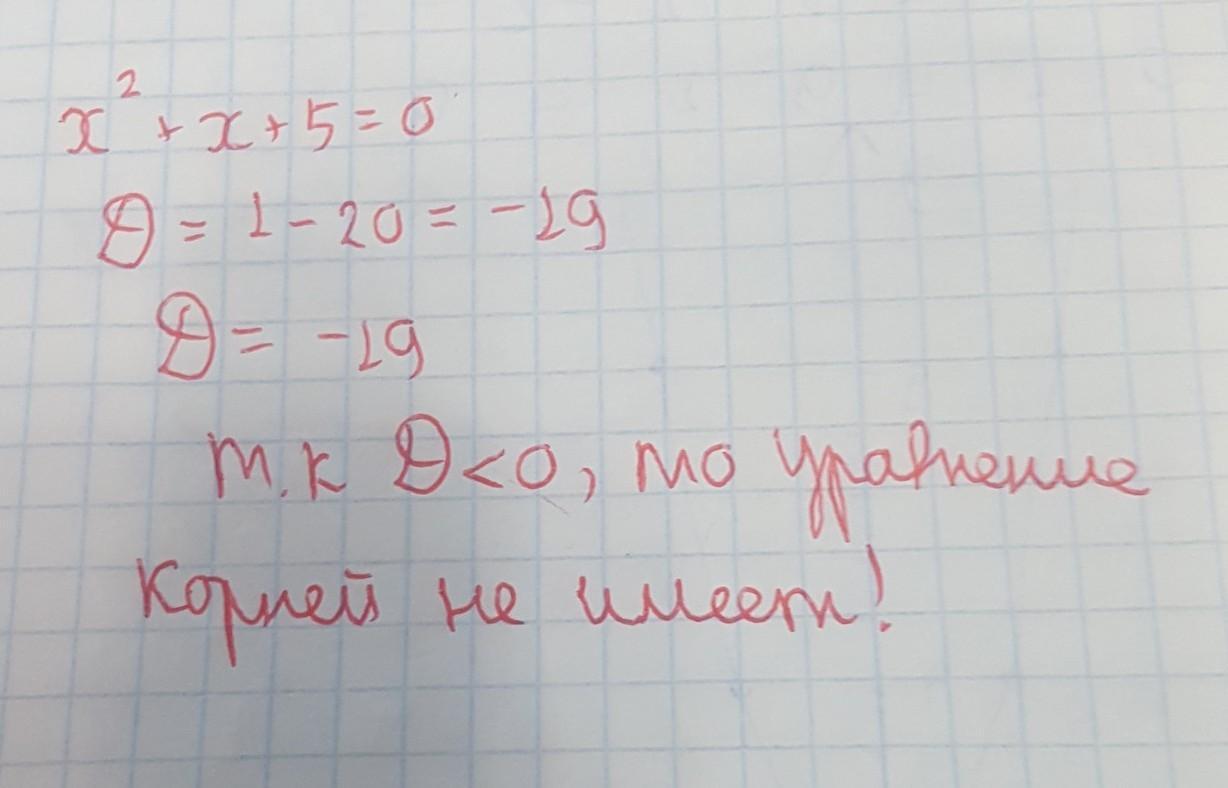 x² + x + 5 = 0
D = 1 - 20 = -19
D = -19
т.к D < 0, то уравнение
корней не имеет!